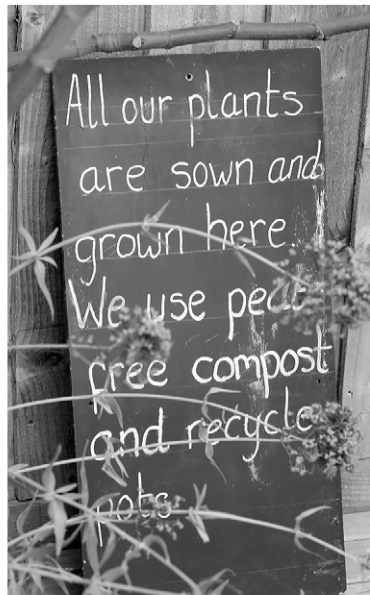 All our plants
are sown and
grown here.
We use peat
free compost
and recycle
pots